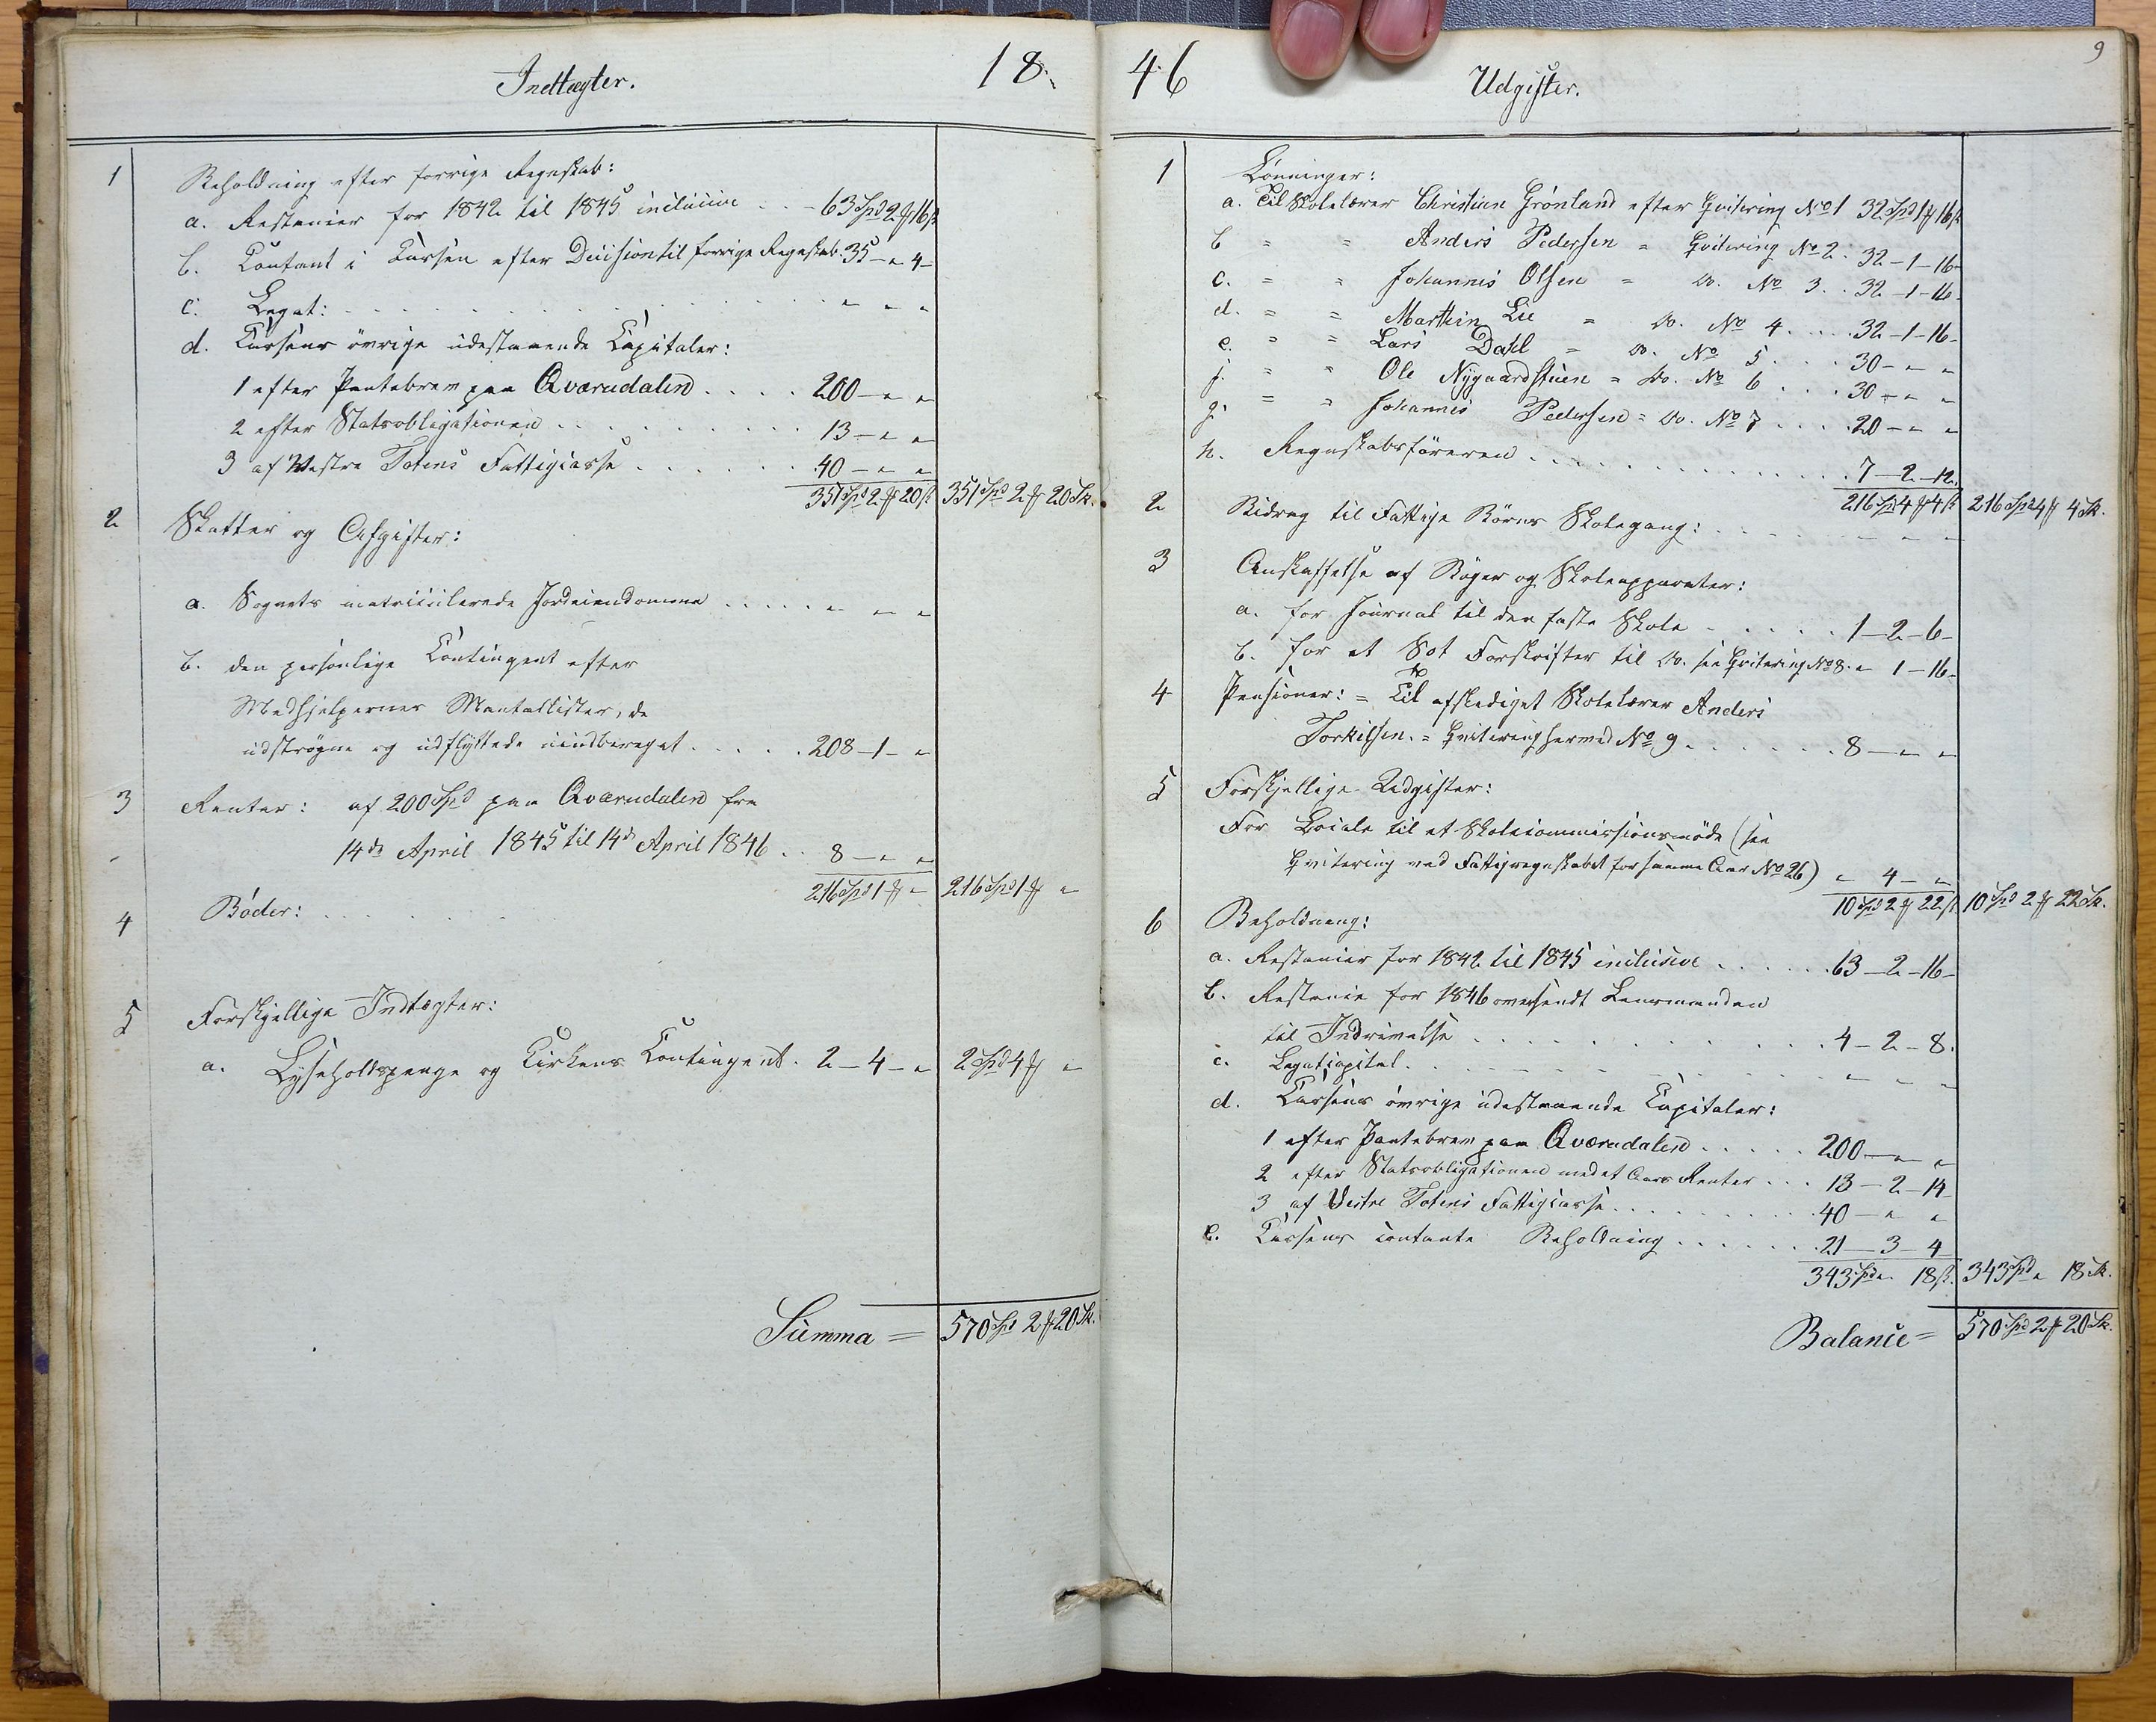 Indtægter.
18
1 Beholdning efter forrige Regnskab:
a. Restancer for 1842 til 1845 inclusive . . . 63 Spd 2 # 16 ß
b. Contant i Cassen efter Decision til forrige Regnskab. 35 - " 4 -
c. Legat: . . . . . . . . . . " " "
d. Cassens øvrige udestaaende Capitaler:
1 efter Pantebrev paa Qværndalen . . . . 200 - " "
2 efter Statsobligationen . . . . . . . . . 13 - " "
3 af Westre Totens Fattigcasse . . . . . . 40 - " "
351 Spd 2 # 20 ß 351 Spd 2 # 20 Sk.
2 Skatter og Afgifter:
a. Sognets matriculerede Jordeiendomme . . . . . " " "
b. den personlige Contingent efter
Medhjelpernes Mantallister, de
udstrøgne og udflyttede uindberegnet . . . . . 208 - 1 - "
3 Renter: af 200 Spd paa Qværndalen fra
14de April 1845 til 14de April 1846 . . 8 - " "
216 Spd 1 # " 216 Spd 1 # "
4 Bøder: . . . . . . .
5 Forskjellige Indtægter:
a. Lyseholdspenge og Kirkens Contingent. 2 - 4 - " 2 Spd 4 # "
Summa = 570 Spd 2 # 20 Sk.
46
Udgifter.
9
1 Lønninger:
a. Til Skolelærer Christian Grønland efter Qvitering No 1 32 Spd 1 # 16 ß
b = = Anders Pedersen = Qvitering No 2. 32 - 1 - 16 -
c. = = Johannes Olsen = Do. No 3 . . 32 - 1 - 16 -
d. = = Marthin Lie = Do. No 4 . . . . 32 - 1 - 16 -
e. = = Lars Dahl = Do. No 5 . . . . 30 - " "
f. = = Ole Nygaardstuen = Do. No 6 . . . 30 - " "
g. = = Johannes Pedersen = Do. No 7 . . . . 20 - " "
h. Regnskabsføreren . . . . . . . . . . . . . . 7 - 2 - 12.
216 Spd 4 # 4 ß 216 Spd 4 # 4 Sk.
2 Bidrag til Fattige Børns Skolegang: . . . . . . " " "
3 Anskaffelse af Bøger og Skoleapparater:
a. for Journal til den faste Skole . . . . . . 1 - 2 - 6 -
b. for et Sæt Forskrifter til Do. see Qvitering No 8. " 1 - 16 -
4 Pensioner: = Til afskediget Skolelærer Anders
Torkilsen. = Qvitering herved No 9 . . . . . . . 8 - " "
5 Forskjellige Udgifter:
For Locale til et Skolecommissionsmøde (see
Qvitering ved Fattigregnskabet for samme Aar No 26) " 4 - "
10 Spd 2 # 22 ß 10 Spd 2 # 22 Sk.
6 Beholdning:
a. Restancer for 1842 til 1845 inclusive . . . . . . 63 - 2 - 16 -
b. Restance for 1846 oversendt Lensmanden
til Inddrivelse . . . . . . . . . . . . 4 - 2 - 8.
c. Legatcapital . . . . . . . . . . . " " "
d. Cassens øvrige udestaaende Capitaler:
1 efter Pantebrev paa Qværndalen . . . . . 200 - " "
2 efter Statsobligationen med et Aars Renter . . . 13 - 2 - 14
3 af Vestre Totens Fattigcasse . . . . . . . . . 40 - " "
e. Cassens contante Beholdning . . . . . . . 21 - 3 - 4
343 Spd " 18 ß. 343 Spd " 18 Sk.
Balance = 570 Spd 2 # 20 Sk.